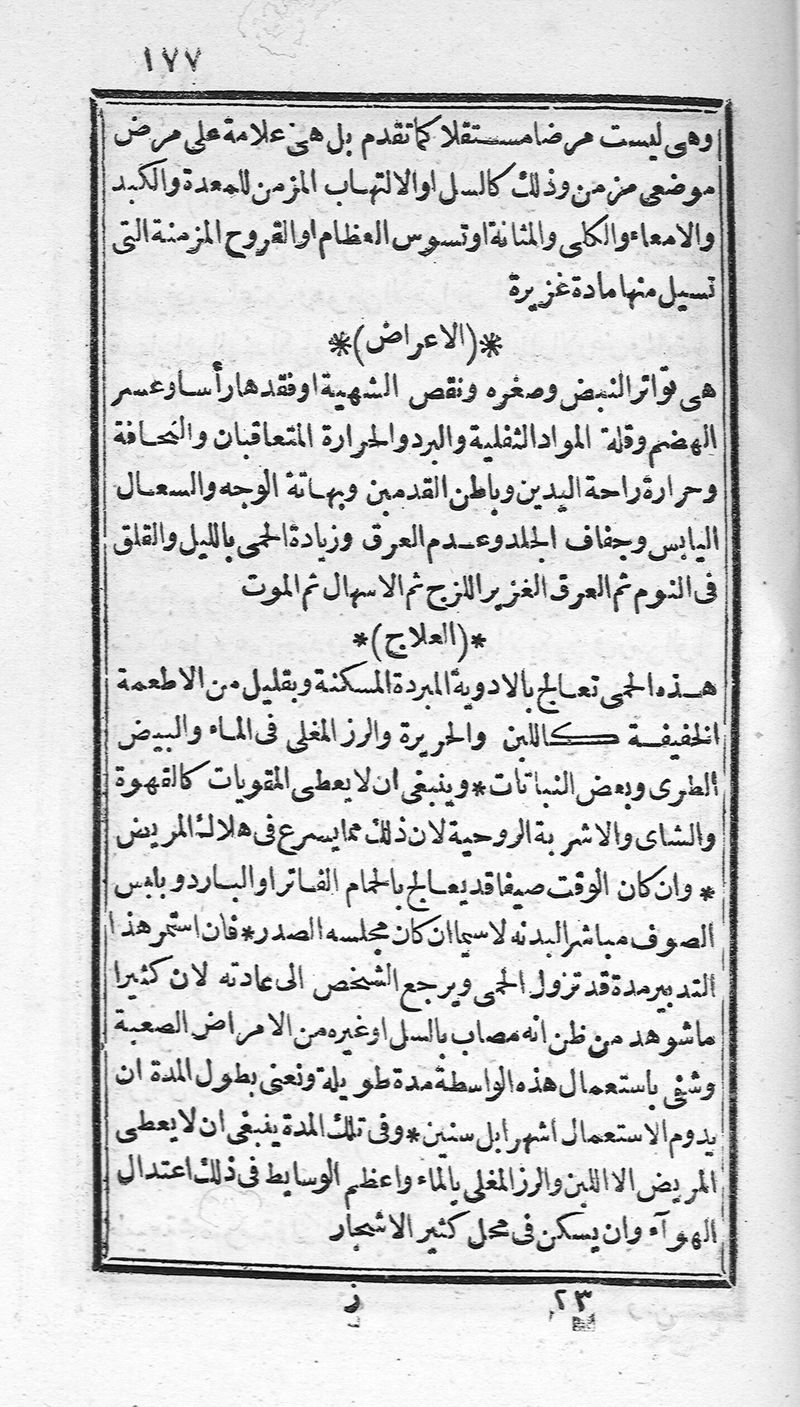 ١٧٧
وهى ليست مرضا مستقلا كما تقدم بل هى علامة على مرض
موضعى مزمن وذلك كالسل او الالتهاب المزمن للمعدة والكبد
والامعاء والكلى والمثانة او تسوس العظام او القروح المزمنة التى
تسيل منها مادة غزيرة
*(الاعراض)*
هى تواتر النبض وصغره ونقص الشهية او فقدها رأسا وعسر
الهضم وقلة المواد الثفلية والبرد والحرارة المتعاقبان والنحافة
وحرارة راحة اليدين وباطن القدمين وبهاتة الوجه والسعال
اليابس وجفاف الجلد وعدم العرق وزيادة الحمى بالليل والقلق
فى النوم ثم العرق الغزير اللزج ثم الاسهال ثم الموت
*(العلاج)*
هذه الحمى تعالج بالادوية المبردة المسكنة وبقليل من الاطعمة
الخفيفة كاللبن والحريرة والرز المغلى فى الماء والبيض
الطرى وبعض النباتات * وينبغى ان لا يعطى المقويات كالقهوة
والشاى والاشربة الروحية لان ذلك مما يسرع فى هلاك المريض
* وان كان الوقت صيفا قد يعالج بالحمام الفاتر او البارد وبلبس
الصوف مباشر البدنه لا سيما ان كان مجلسه الصدر * فان استمر هذا
التدبير مدة قد تزول الحمى ويرجع الشخص الى عادته لان كثيرا
ما شوهد من ظن انه مصاب بالسل او غيره من الامراض الصعبة
وشفى باستعمال هذه الواسطة مدة طويلة ونعنى بطول المدة ان
يدوم الاستعمال اشهرا بل سنين * وفى تلك المدة ينبغى ان لا يعطى
المريض الا اللبن والرز المغلى بالماء واعظم الوسايط فى ذلك اعتدال
الهوآء وان يسكن فى محل كثير الاشجار
٢٣ ز